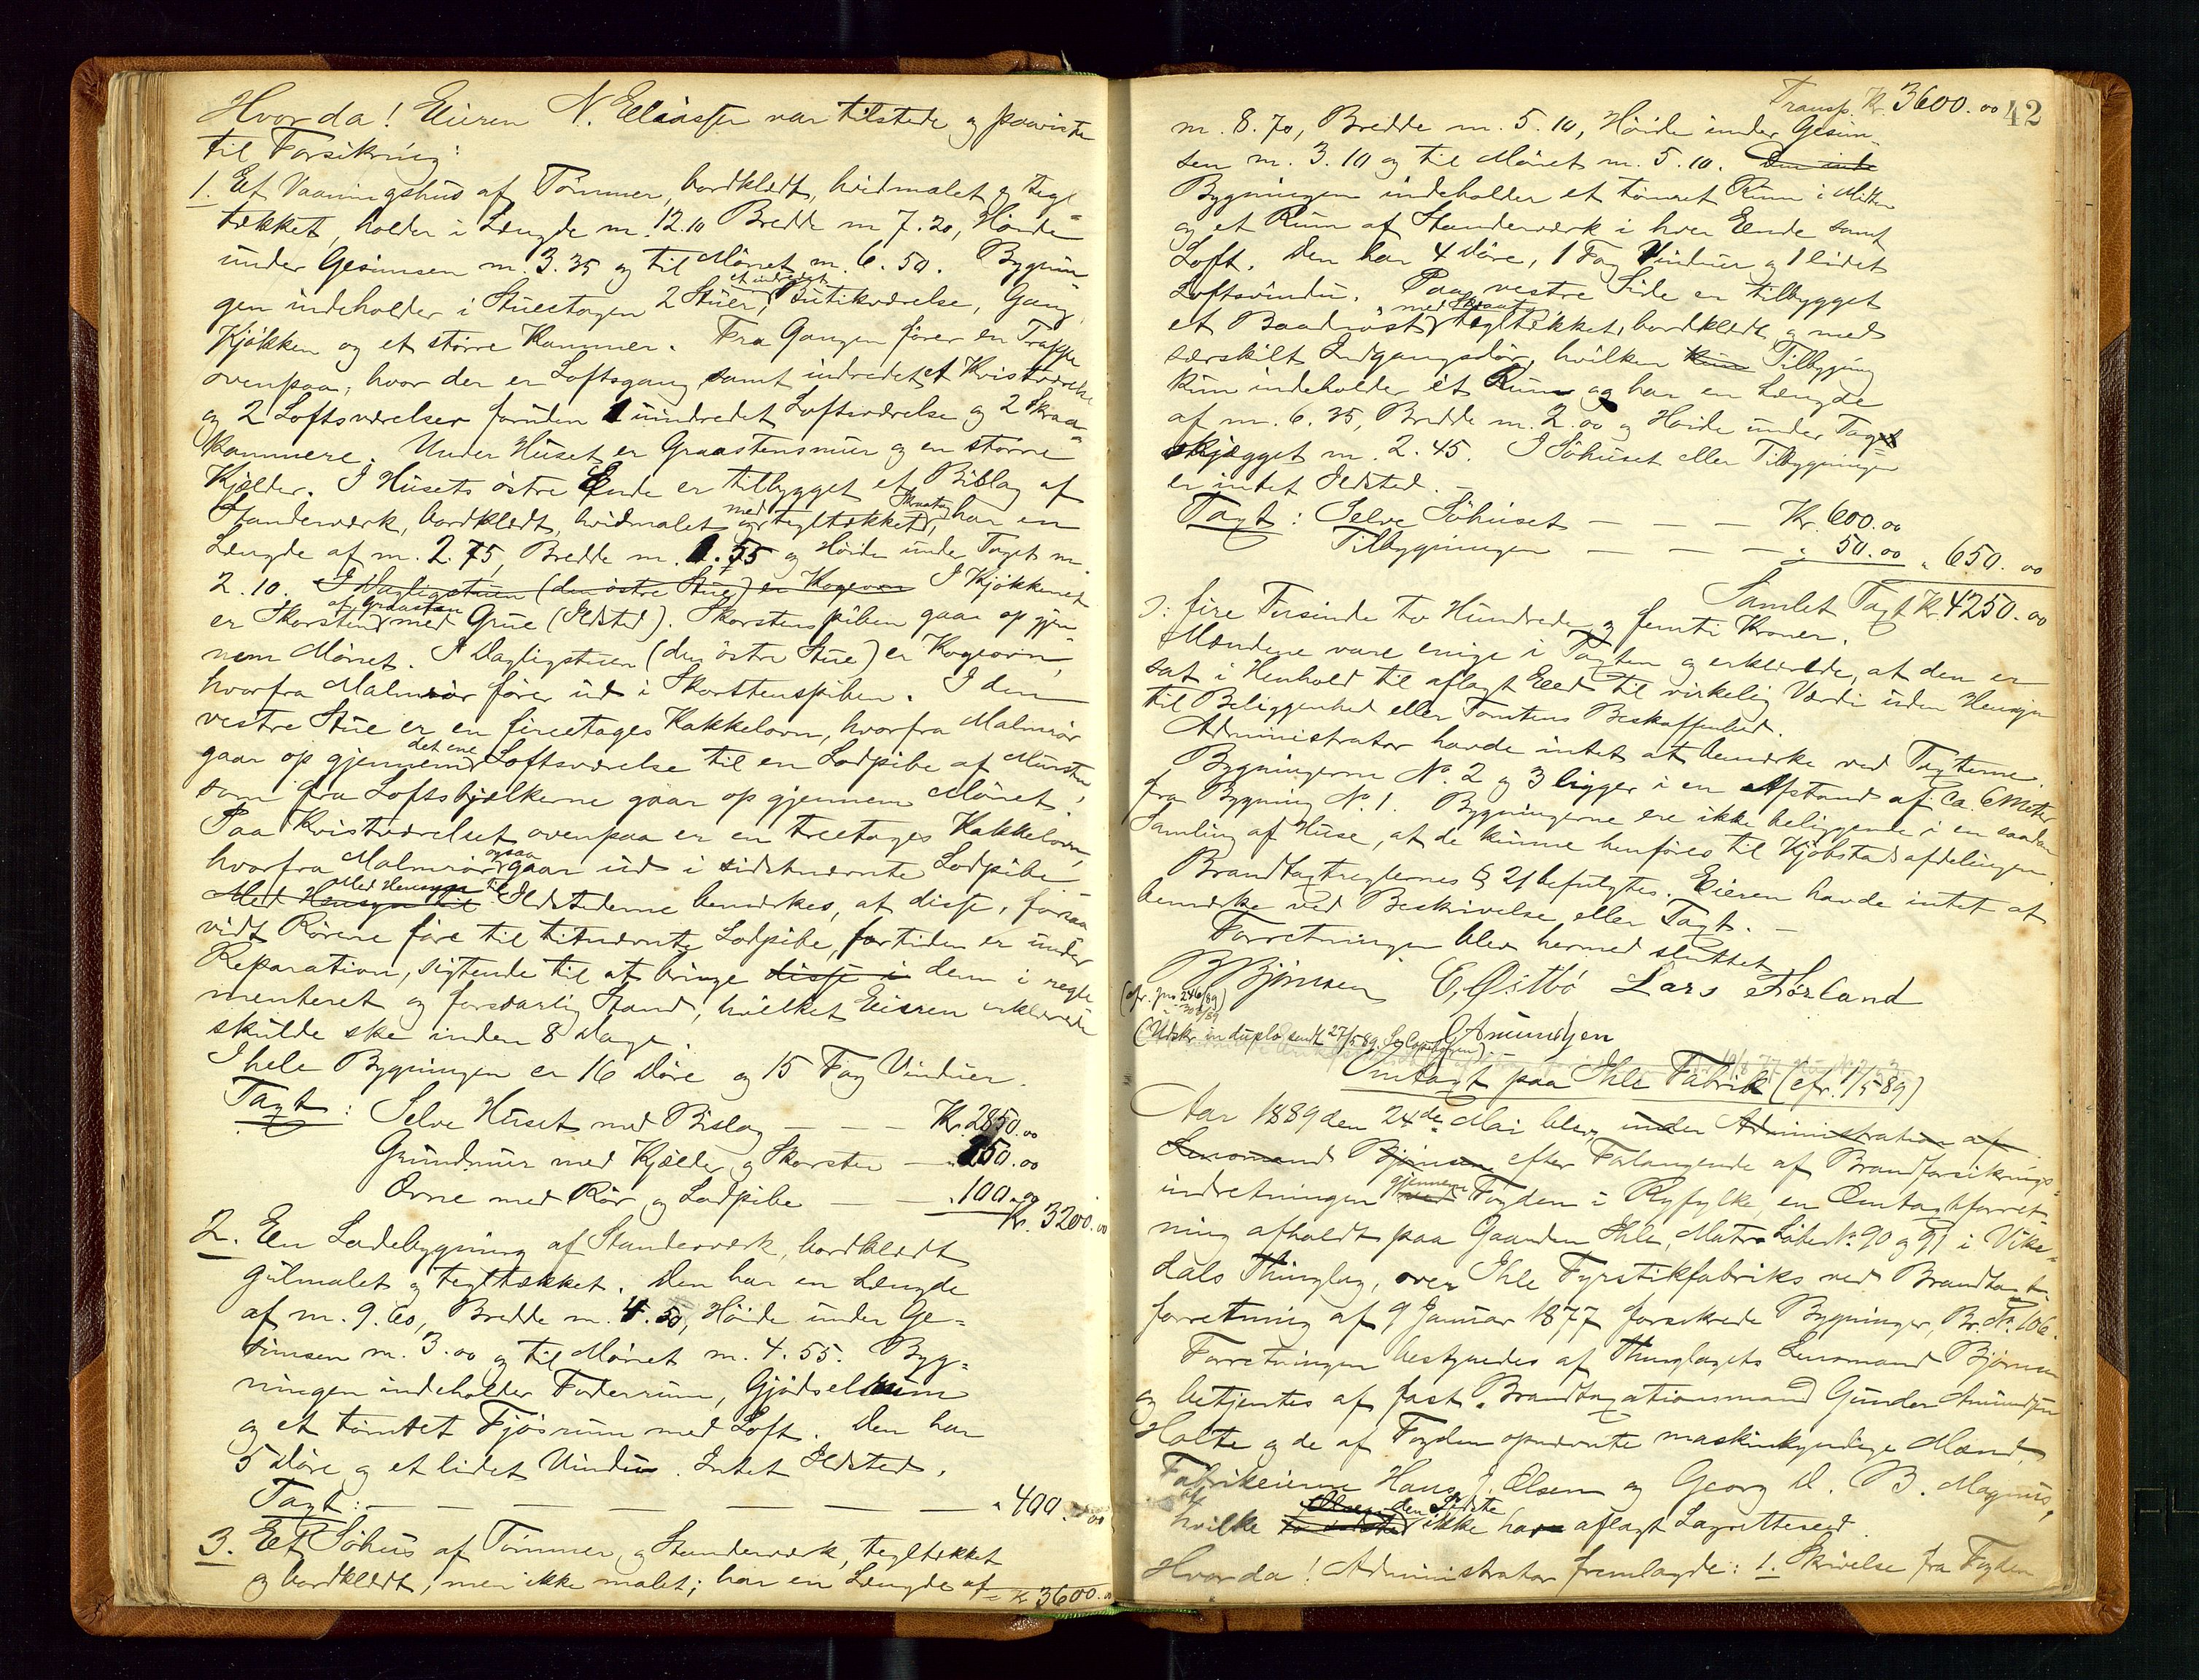 Hvorda! Eieren N. Eliassen var tilstede og paaviste
til Forsikring:
1. Et Vaaningshus af Tømmer, bordklædt, hvidmalet & tegl=
tækket, holder i Længde m. 12.10 Bredde m 7.20, Høide
under Gesimsen m. 3.35 og til Mønet m. 6.50. Bygnin
gen indeholder i Stueetagen 2 Stuer, et indredet Butikværelse, Gang,
Kjøkken og et større Kammer. Fra Gangen fører en Trappe
ovenpaa, hvor der er Loftsgang samt indredet et Kvistværelse
og 2 Loftsværelser foruden 1 uindredet Loftsværelse og 2 Skraa=
kammere. Under Huset er Graastensmur og en større
Kjælder. I Husets østre Ende er tilbygget et Bislag af
Standerværk, bordklædt, hvidmalet og med teglækket Skraatag, har en
Længde af m. 2.75, Bredde m. 1.55 og Høide under Taget m.
2.10. I Dagligstuen (den østre Stue) er Kogeovn I Kjøkkenet
er Skorsten af Graasten med Grue (Ildsted). Skorstenspiben gaar op gjen
nem Mønet. I Dagligstuen (den østre Stue) er Kogeovn,
hvorfra Malmrør fører ud i Skorstenspiben. I den
vestre Stue er en fireetages Kakkelovn, hvorfra Malmrør
gaar op gjennem det ene Loftsværelse til en Lodpibe af Mursten,
som fra Loftsbjælkerne gaar op gjennem Mønet.
Paa Kvistværelset ovenpaa er en treetages Kakkelovn,
hvorfra Malmrør ogsaa gaar ud i sidstnævnte Lodpibe
Med Hensyn til Med Hensyn til Ildstederne bemærkes, at disse, forsaa
vidt Rørene føre til titnævnte Lodpibe, fortiden er under
Reparation, sigtende til at bringe disse i dem i regle
menteret og forsvarlig Stand, hvilket Eieren erklærede
skulde ske inden 8 Dage.
I hele Bygningen er 16 Døre og 15 Fag Vinduer.
Taxt: Selve Huset med Bislag — — — Kr. 2850.00
Grundmur med Kjælder og Skorsten — 250.00
Ovne med Rør og Lodpibe — — " 100.00
Kr. 3200.00
2. En Ladebygning af Standerværk, bordklædt
gulmalet og tegltækket. Den har en Længde
af m. 9.60, Bredde m. 4.50, Høide under Ge=
simsen m. 3.00 og til Mønet m. 4.55. Byg=
ningen indeholder Foderrum, Gjødselrum
og et tømret Fjøsrum med Loft. Den har
5 Døre og et lidet Vindu. Intet Ildsted.
Taxt: — — — — — — " 400.00
3. Et Søhus af Tømmer og Standerværk, tegltækket
og bordklædt, men ikke malet; har en Længde af
Kr 3600.00
Transp. Kr. 3600.00 42
m. 8.70, Bredde m. 5.10, Høide under Gesim=
sen m. 3.10 og til Mønet m. 5.10. Den inde
Bygningen indeholder et tømret Rum i Midten
og et Rum af Standerværk i hver Ende samt
Loft. Den har 4 Døre, 1 Fag Vinduer og 1 lidet
Loftsvindu. Paa vestre Side er tilbygget
et Baadnøst med Skraatag tegltækket, bordklædt og med
særskilt Indgangsdør, hvilken kun Tilbygning
kun indeholder et Rum og har en Længde
af m. 6.35, Bredde m. 2.00 og Høide under Tag
skjægget m. 2.45. I Søhuset eller Tilbygningen
er intet Ildsted. —
Taxt: Selve Søhuset — — — Kr. 600.00
Tilbygningen — — — " 50.00 " 650.00
Samlet Taxt Kr. 4250.00
ɔ: fire Tusinde to Hundrede og femti Kroner.
Mændene vare enige i Taxten og erklærede, at den er
sat i Henhold til aflagt Eed til virkelig Værdi uden Hensyn
til Beliggenhed eller Tomtens Beskaffenhed.
Administrator havde intet at bemærke ved Taxterne.
Bygningerne No. 2 og 3 ligger i en Afstand af ca. 6 Meter
fra Bygning No. 1. Bygningerne ere ikke beliggende i en saadan
Samling af Huse, at de kunne henføres til Kjøbstadsafdelingen.
Brandtaxtreglernes § 21 befulgtes. Eieren havde intet at
bemærke ved Beskrivelse eller Taxt. —
Forretningen blev hermed sluttet
B Bjønsen E. Østbø Lars Førland
(cfr. jno. 246/89)
308/89
G Amundsen
(Udskr. in duplo sendt 27/5 89.
Omtaxt paa Ihle Fabrik (cfr. 1/5-89)
Aar 1889 den 24de Mai blev, under Administration af
Lensmand Bjønsen efter Forlangende af Brandforsikrings=
indretningen ved gjennem Fogden i Ryfylke, en Omtaxtforret=
ning afholdt paa Gaarden Ihle, Matr. Løbe No. 90 og 91 i Vike=
dals Thinglag, over Ihle Fyrstikfabriks ved Brandtaxt=
forretning af 9 Januar 1877 forsikrede Bygninger, Br. No. 106.
Forretningen bestyredes af Thinglagets Lensmand Bjønsen
og betjentes af fast Brandtaxationsmand Gunder Amundsen
Holte og de af Fogden opnævnte maskinkyndige Mænd,
Fabrikeierne Hans J. Olsen og Georg D. B. Magnus,
af hvilke Olsen den Sidste ikke have aflagt Lagretteseed.
Hvorda! Administrator fremlagde: 1. Skrivelse fra Fogden